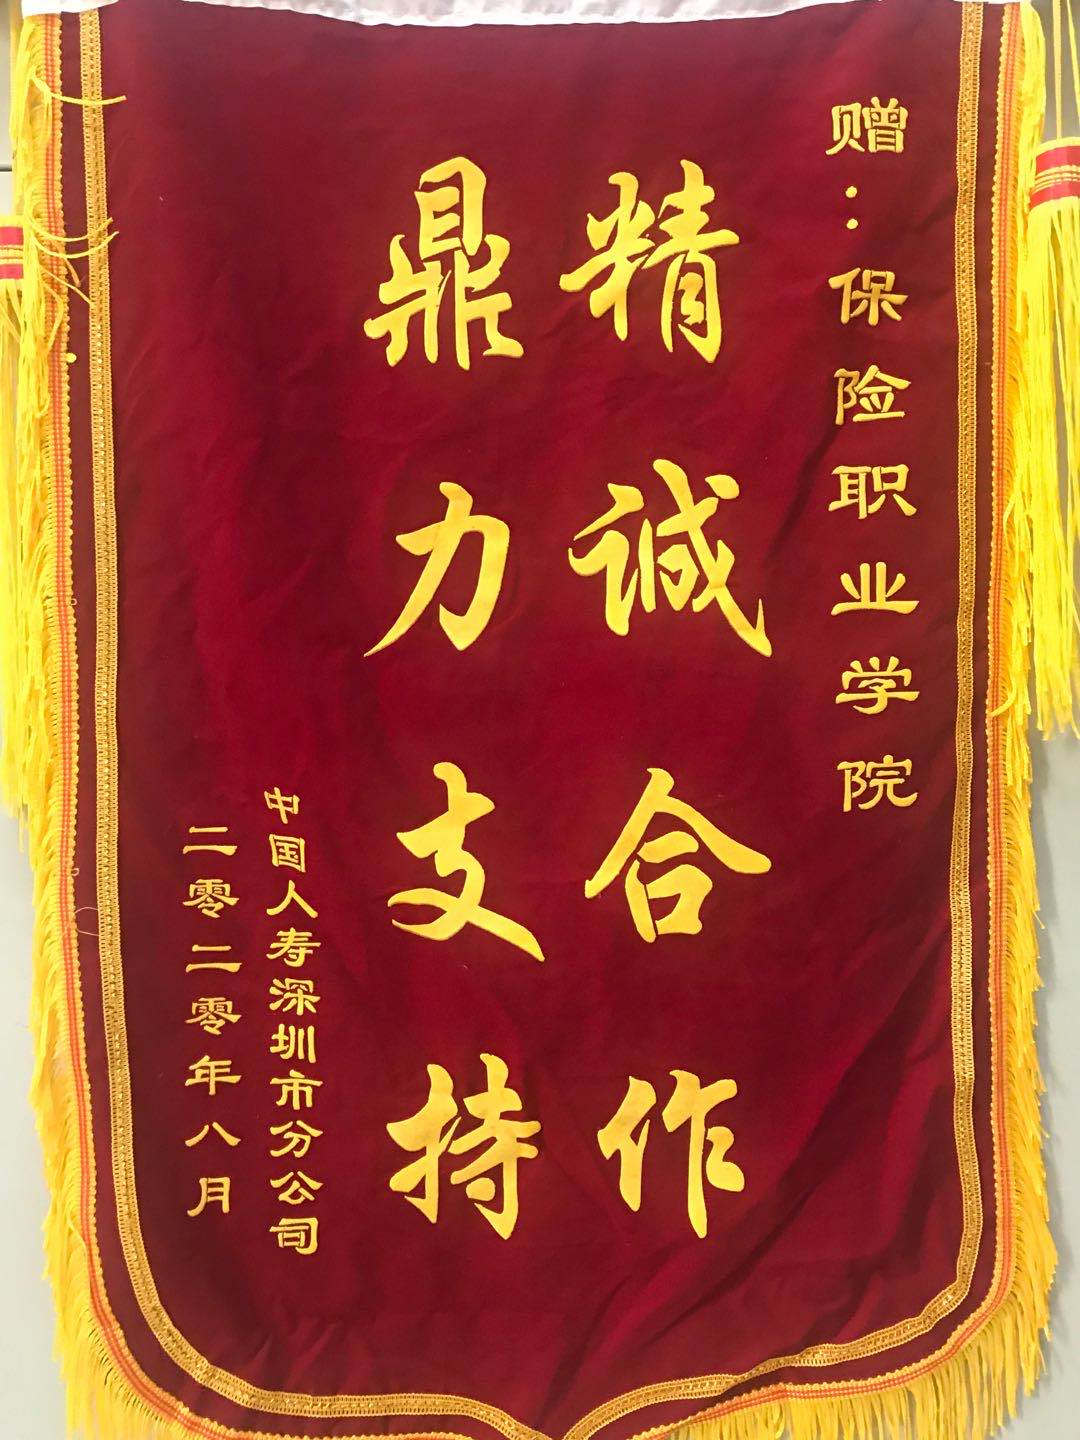 赠：保险职业学院
精诚合作
鼎力支持
中国人寿深圳市分公司
二零二零年八月